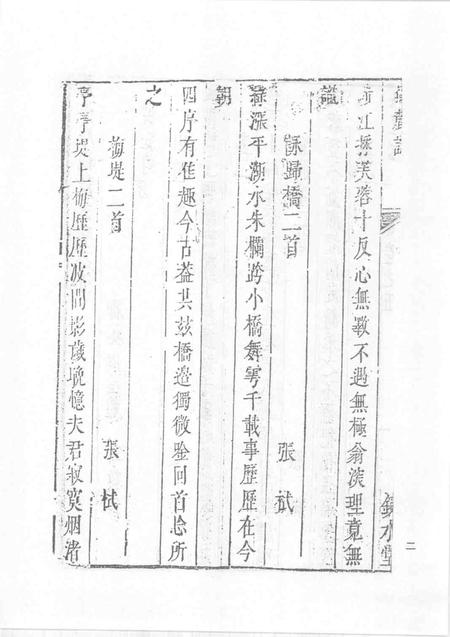 涉江採芙蓉十反心無斁不遇無極翁淡理竟無
識
詠歸橋二首
張栻
綠漲平湖水朱欄跨小橋舞雩千載事歷歷在今
朝
四序有佳趣今古蓋共茲橋邊獨微詠回首忩所
之
梅堤二首
張栻
亭亭堤上梅歷歷波間影歲晚憶夫君寂寞烟渚
鏡水堂
二